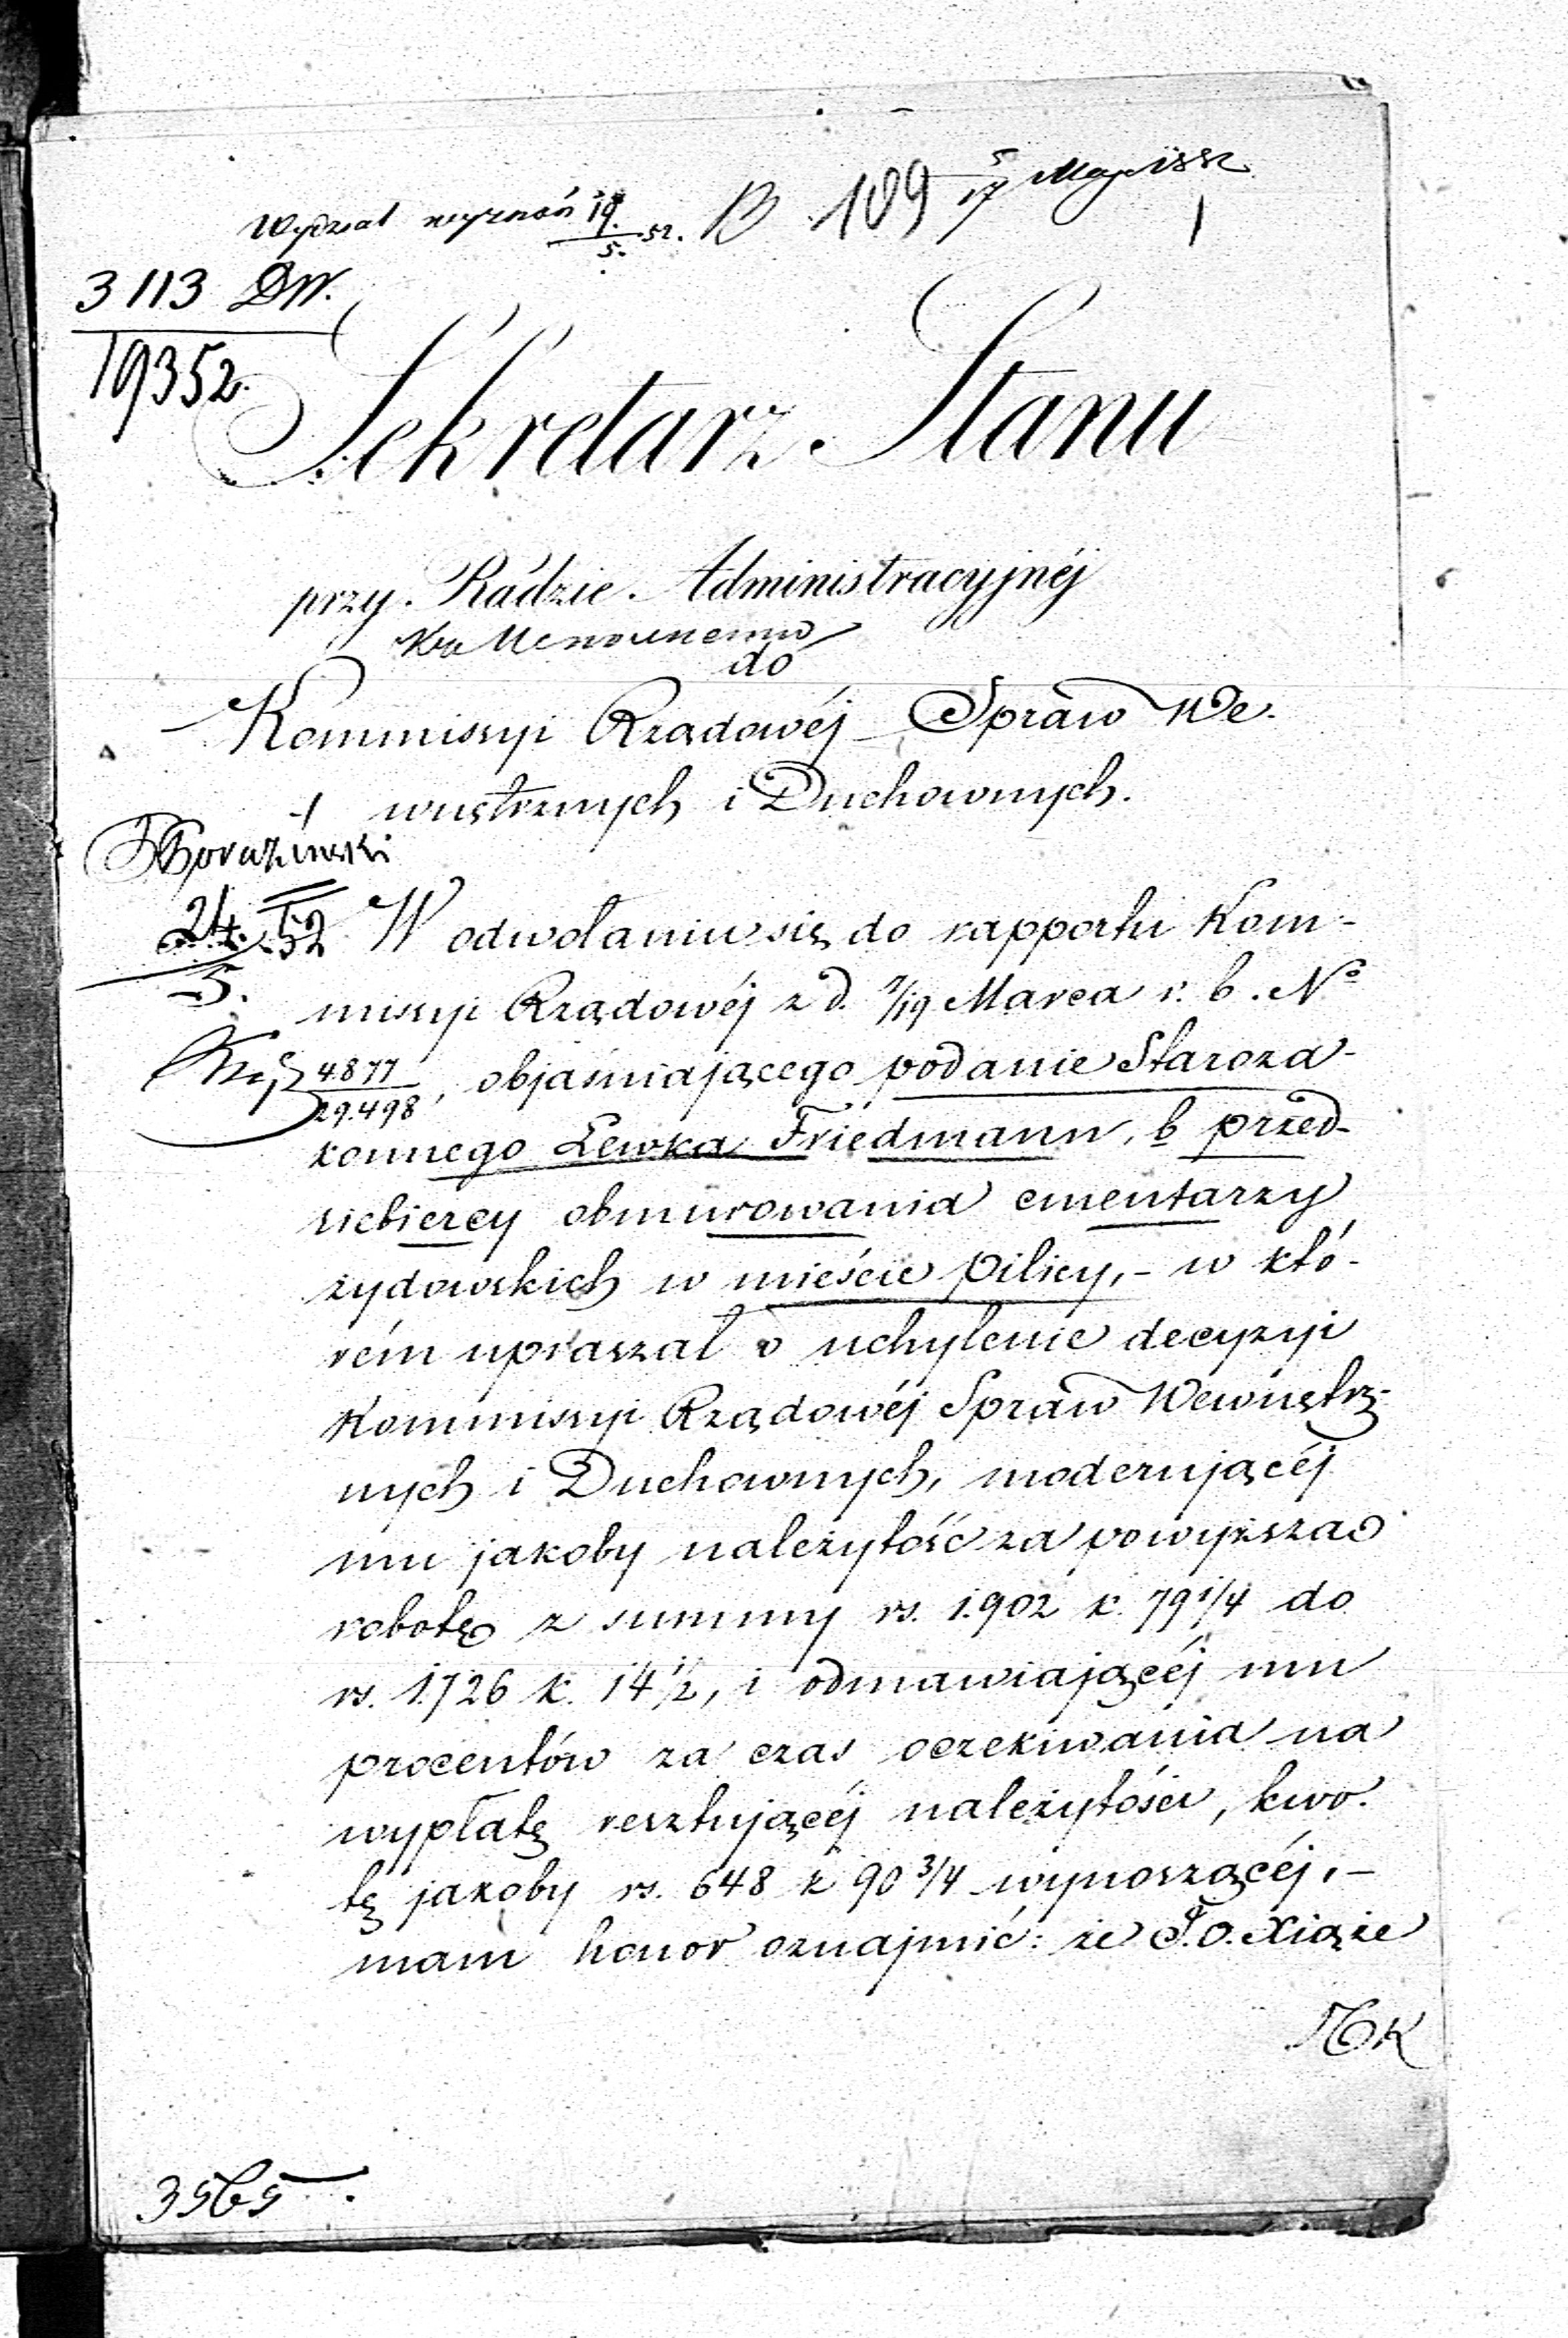 Wydział wyznań 19/5. 52. B 109 5/17 Maja 1852
1
3113 DW.
19352.
Sekretarz Stanu
przy Radzie Administracyjnéj
do
Kommissyi Rządowéj Spraw We-
wnętrznych i Duchownych.
24/5. 52
W odwołaniu się do rapportu Kom-
missyi Rządowéj z d. 7/19 Marca r. b. No
4877/29.498, objaśniającego podanie Staroza-
konnego Lewka Friedmann, b przed-
siebiercy obmurowania cmentarzy
żydowskich w mieście Pilicy, - w któ-
rém upraszał o uchylenie decyzyi
Kommissyi Rządowéj Spraw Wewnętrz-
nych i Duchownych, moderującéj
mu jakoby należytość za powyższą
robotę z summy rs. 1.902 k. 79 1/4 do
rs. 1.726 k. 14 1/2, i odmawiającéj mu
procentów za czas oczekiwania na
wypłatę resztującéj należytości, kwo-
tę jakoby rs. 648 k 90 3/4 wynoszącéj, -
mam honor oznajmić: że J.O. Xiąże
3565.